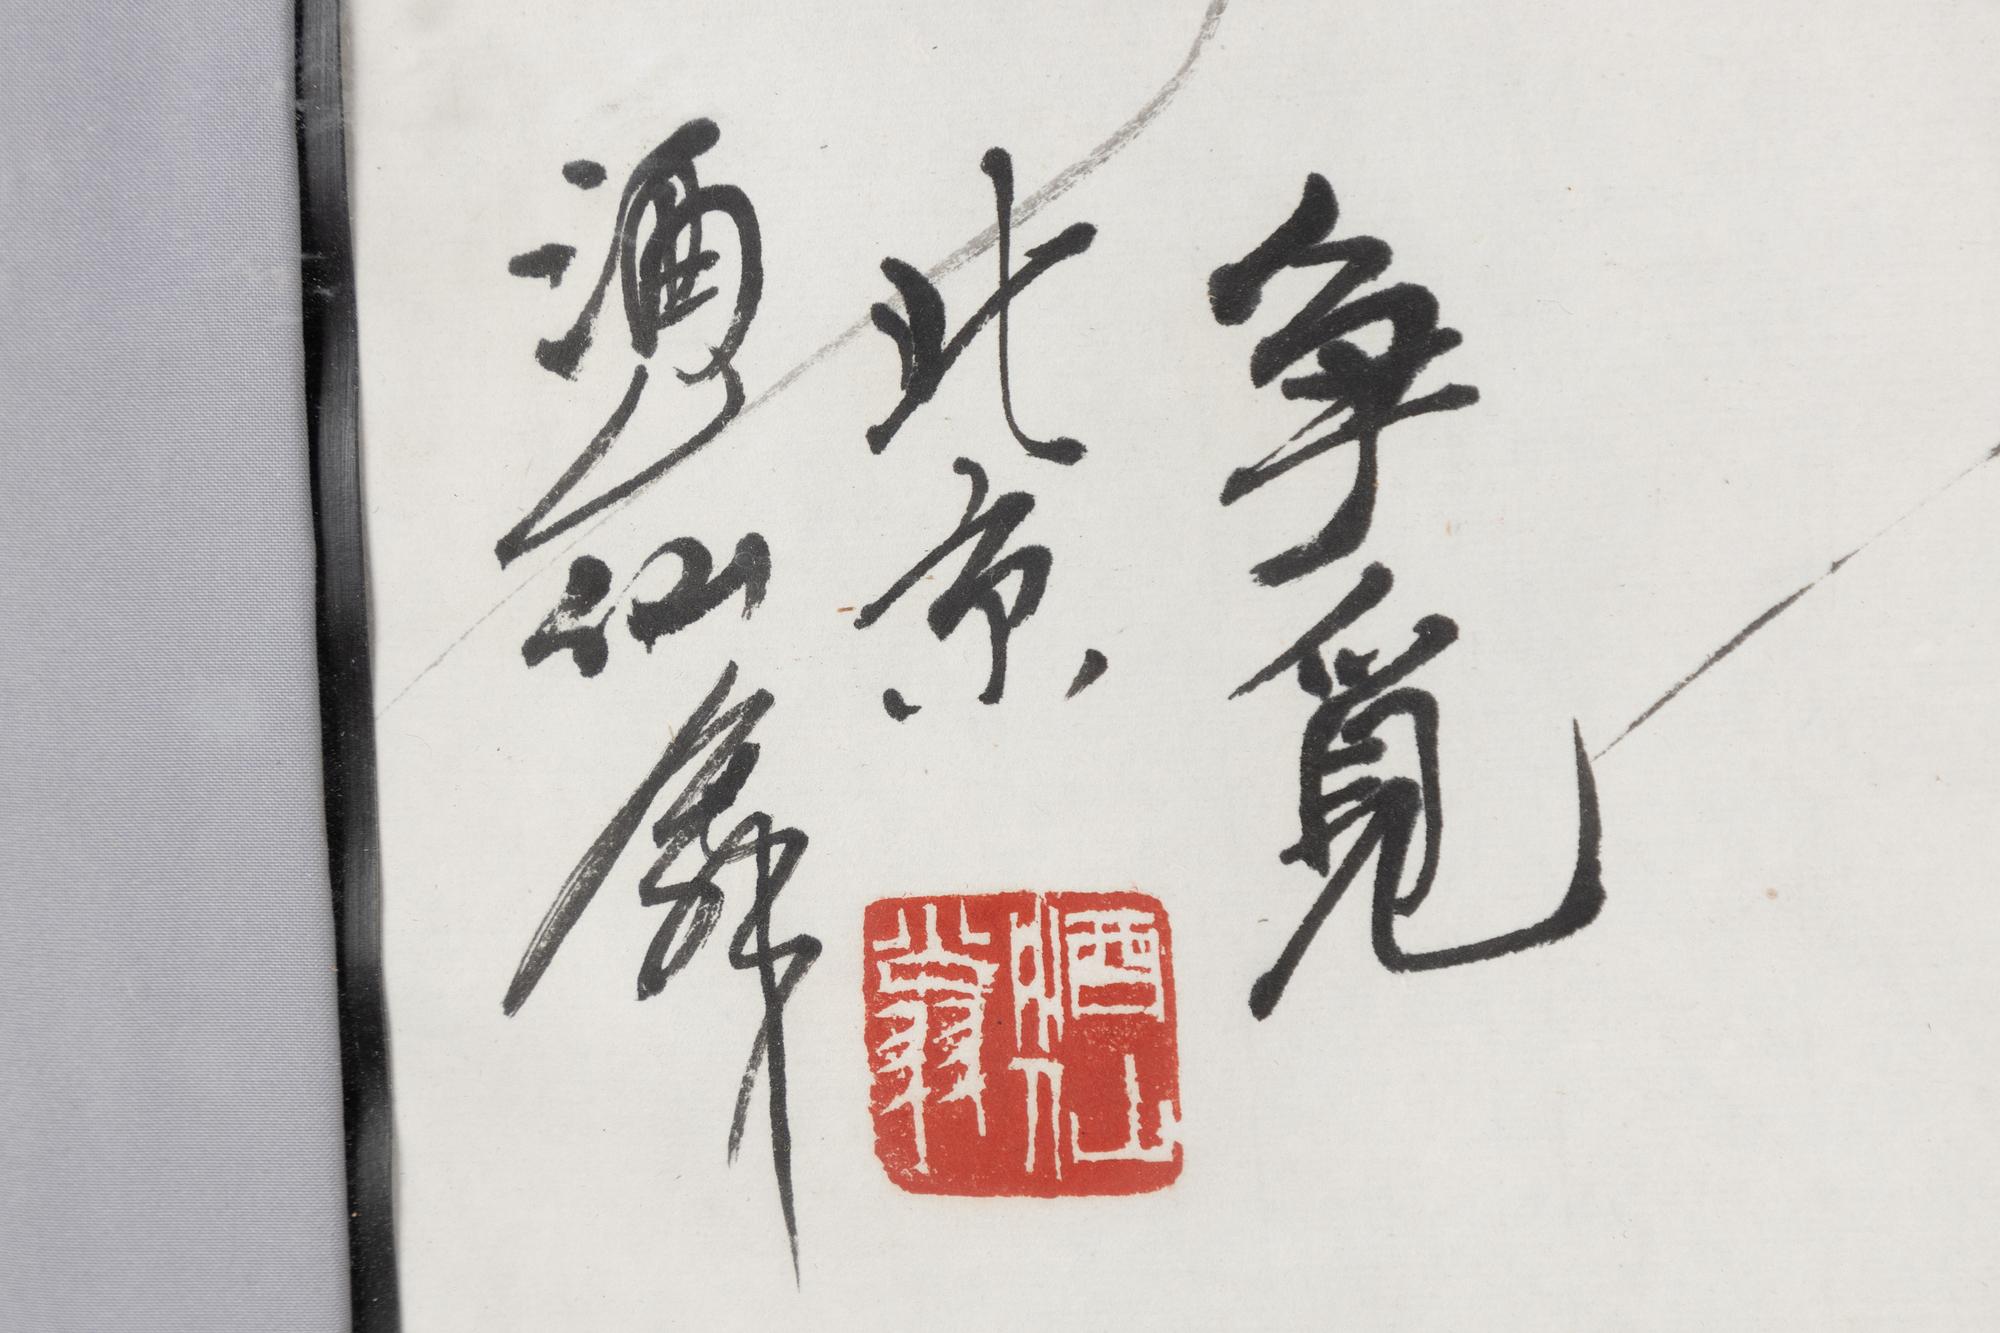 争觅
北京
酒仙
酒仙
翁